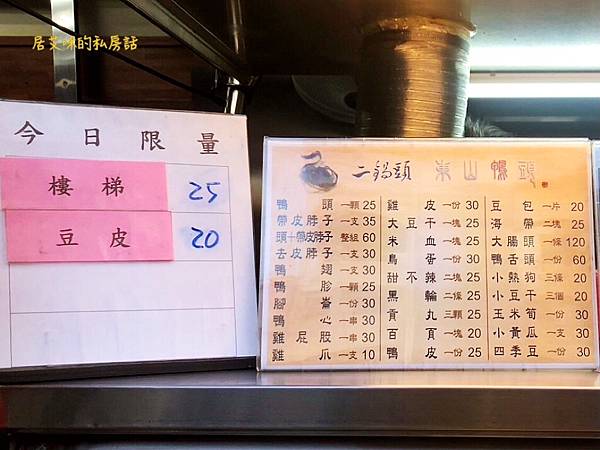 居艾咪的私房話
今日限量
樓梯 25
豆皮 20
二鍋頭 東山鴨頭
鴨頭 一顆 25
帶皮脖子 一支 35
頭+帶皮脖子 整組 60
去皮脖子 一支 30
鴨翅 一支 30
鴨胗 一顆 25
腳 一份 30
鴨心 一串 30
雞屁股 一串 30
雞爪 一支 10
雞皮 一份 30
大豆干 一塊 25
米血 一塊 25
鳥蛋 一份 30
甜不辣 二塊 25
黑輪 二條 25
貢丸 三顆 25
百頁 一塊 20
鴨皮 一份 25
豆包 一片 20
海帶 二塊 25
大腸頭 一條 120
鴨舌頭 一份 60
小熱狗 三條 20
小豆干 三個 20
玉米筍 一份 30
小黃瓜 一支 30
四季豆 一份 30